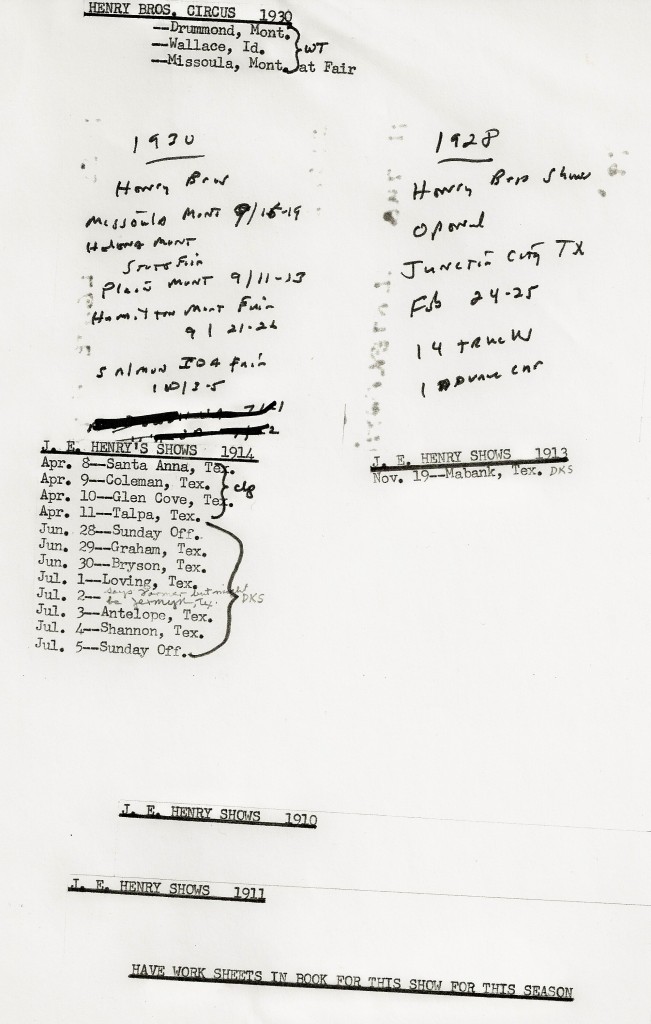 HENRY BROS. CIRCUS 1930
--Drummond, Mont.
--Wallace, Id.
WT
--Missoula, Mont. at Fair
1930
Henry Bros
Missoula Mont 9/15-19
Helena Mont
State Fair
Plains Mont 9/11-13
Hamilton Mont Fair
9/21-26
Salmon IDA Fair
10/3-5
1928
Henry Bros Shows
Opened
Junction City TX
Feb 24-25
14 trucks
1 advance car
J. E. HENRY'S SHOWS 1914
Apr. 8--Santa Anna, Tex.
Apr. 9--Coleman, Tex.
clg
Apr. 10--Glen Cove, Tex.
Apr. 11--Talpa, Tex.
Jun. 28--Sunday Off.
Jun. 29--Graham, Tex.
Jun. 30--Bryson, Tex.
Jul. 1--Loving, Tex.
Jul. 2--says Farmer but might
be Jermyn, Tex.
DKS
Jul. 3--Antelope, Tex.
Jul. 4--Shannon, Tex.
Jul. 5--Sunday Off.
J. E. HENRY SHOWS 1913
Nov. 19--Mabank, Tex. DKS
J. E. HENRY SHOWS 1910
J. E. HENRY SHOWS 1911
HAVE WORK SHEETS IN BOOK FOR THIS SHOW FOR THIS SEASON